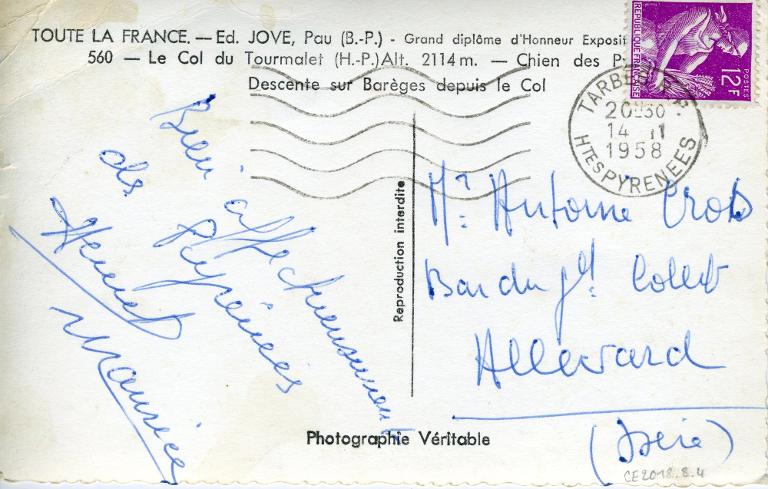 TOUTE LA FRANCE. — Ed. JOVE, Pau (B.-P.) - Grand diplôme d'Honneur Exposit
560 — Le Col du Tourmalet (H.-P.) Alt. 2114 m. — Chien des P
Descente sur Barèges depuis le Col
REPUBLIQUE FRANÇAISE
POSTES
12F
TARBES R.P.
20H30
14 - II
1958
HTES PYRENEES
Bien affectueusement
des Pyrénées
Maurice
Reproduction interdite
Mr. Antoine Crois
Bar du Gd. Collet
Allevard
(Isère)
Photographie Véritable
CE2018.8.4